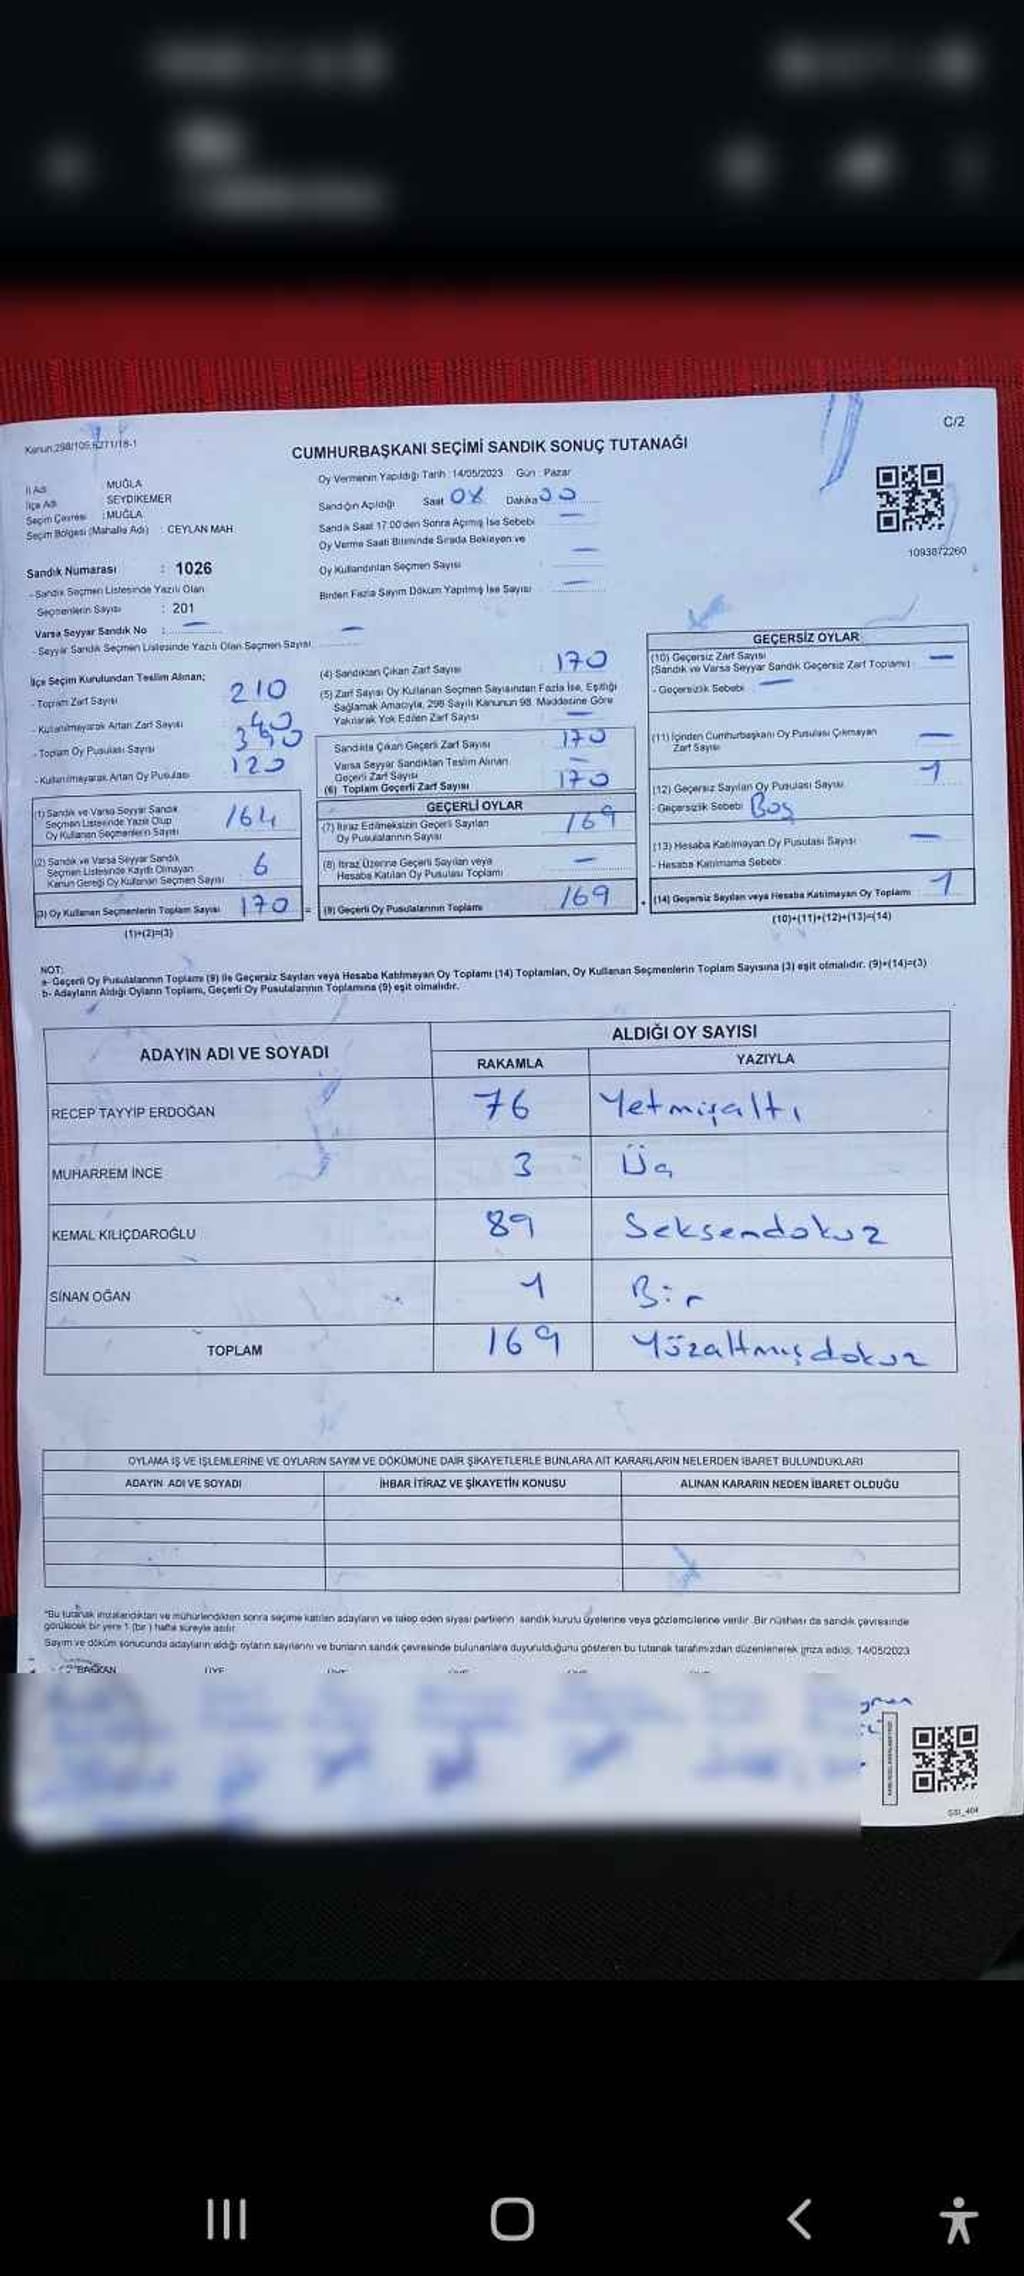 Kanun:298/105,6271/18-1
C/2
CUMHURBAŞKANI SEÇİMİ SANDIK SONUÇ TUTANAĞI
İl Adı : MUĞLA
İlçe Adı : SEYDİKEMER
Seçim Çevresi : MUĞLA
Seçim Bölgesi (Mahalle Adı) : CEYLAN MAH.
Oy Vermenin Yapıldığı Tarih : 14/05/2023 Gün : Pazar
Sandığın Açıldığı Saat 08 Dakika 00
Sandık Saat 17:00'den Sonra Açılmış İse Sebebi —
Oy Verme Saati Bitiminde Sırada Bekleyen ve
Oy Kullandırılan Seçmen Sayısı —
Birden Fazla Sayım Döküm Yapılmış İse Sayısı —
1093872260
Sandık Numarası : 1026
- Sandık Seçmen Listesinde Yazılı Olan
Seçmenlerin Sayısı : 201
Varsa Seyyar Sandık No : —
- Seyyar Sandık Seçmen Listesinde Yazılı Olan Seçmen Sayısı —
İlçe Seçim Kurulundan Teslim Alınan;
- Toplam Zarf Sayısı 210
- Kullanılmayarak Artan Zarf Sayısı 40
- Toplam Oy Pusulası Sayısı
- Kullanılmayarak Artan Oy Pusulası 120
(1) Sandık ve Varsa Seyyar Sandık
Seçmen Listesinde Yazılı Olup
Oy Kullanan Seçmenlerin Sayısı 164
(2) Sandık ve Varsa Seyyar Sandık
Seçmen Listesinde Kayıtlı Olmayan
Kanun Gereği Oy Kullanan Seçmen Sayısı 6
(3) Oy Kullanan Seçmenlerin Toplam Sayısı 170 =
(1)+(2)=(3)
(4) Sandıktan Çıkan Zarf Sayısı 170
(5) Zarf Sayısı Oy Kullanan Seçmen Sayısından Fazla İse, Eşitliği
Sağlamak Amacıyla, 298 Sayılı Kanunun 98. Maddesine Göre
Yakılarak Yok Edilen Zarf Sayısı —
Sandıkta Çıkan Geçerli Zarf Sayısı 170
Varsa Seyyar Sandıktan Teslim Alınan
Geçerli Zarf Sayısı —
(6) Toplam Geçerli Zarf Sayısı 170
GEÇERLİ OYLAR
(7) İtiraz Edilmeksizin Geçerli Sayılan
Oy Pusulalarının Sayısı 169
(8) İtiraz Üzerine Geçerli Sayılan veya
Hesaba Katılan Oy Pusulası Toplamı —
(9) Geçerli Oy Pusulalarının Toplamı 169 +
GEÇERSİZ OYLAR
(10) Geçersiz Zarf Sayısı
(Sandık ve Varsa Seyyar Sandık Geçersiz Zarf Toplamı) —
- Geçersizlik Sebebi —
(11) İçinden Cumhurbaşkanı Oy Pusulası Çıkmayan
Zarf Sayısı —
(12) Geçersiz Sayılan Oy Pusulası Sayısı 1
- Geçersizlik Sebebi Boş
(13) Hesaba Katılmayan Oy Pusulası Sayısı —
- Hesaba Katılmama Sebebi
(14) Geçersiz Sayılan veya Hesaba Katılmayan Oy Toplamı 1
(10)+(11)+(12)+(13)=(14)
NOT:
a- Geçerli Oy Pusulalarının Toplamı (9) ile Geçersiz Sayılan veya Hesaba Katılmayan Oy Toplamı (14) Toplamları, Oy Kullanan Seçmenlerin Toplam Sayısına (3) eşit olmalıdır. (9)+(14)=(3)
b- Adayların Aldığı Oyların Toplamı, Geçerli Oy Pusulalarının Toplamına (9) eşit olmalıdır.
ADAYIN ADI VE SOYADI
ALDIĞI OY SAYISI
RAKAMLA YAZIYLA
RECEP TAYYİP ERDOĞAN 76 Yetmişaltı
MUHARREM İNCE 3 Üç
KEMAL KILIÇDAROĞLU 89 Seksendokuz
SİNAN OĞAN 1 Bir
TOPLAM 169 Yüzaltmışdokuz
OYLAMA İŞ VE İŞLEMLERİNE VE OYLARIN SAYIM VE DÖKÜMÜNE DAİR ŞİKAYETLERLE BUNLARA AİT KARARLARIN NELERDEN İBARET BULUNDUKLARI
ADAYIN ADI VE SOYADI İHBAR İTİRAZ VE ŞİKAYETİN KONUSU ALINAN KARARIN NEDEN İBARET OLDUĞU
*Bu tutanak imzalandıktan ve mühürlendikten sonra seçime katılan adayların ve talep eden siyasi partilerin sandık kurulu üyelerine veya gözlemcilerine verilir. Bir nüshası da sandık çevresinde
görülecek bir yere 1 (bir) hafta süreyle asılır.
Sayım ve döküm sonucunda adayların aldığı oyların sayılarını ve bunların sandık çevresinde bulunanlara duyurulduğunu gösteren bu tutanak tarafımızdan düzenlenerek imza edildi. 14/05/2023
BAŞKAN ÜYE